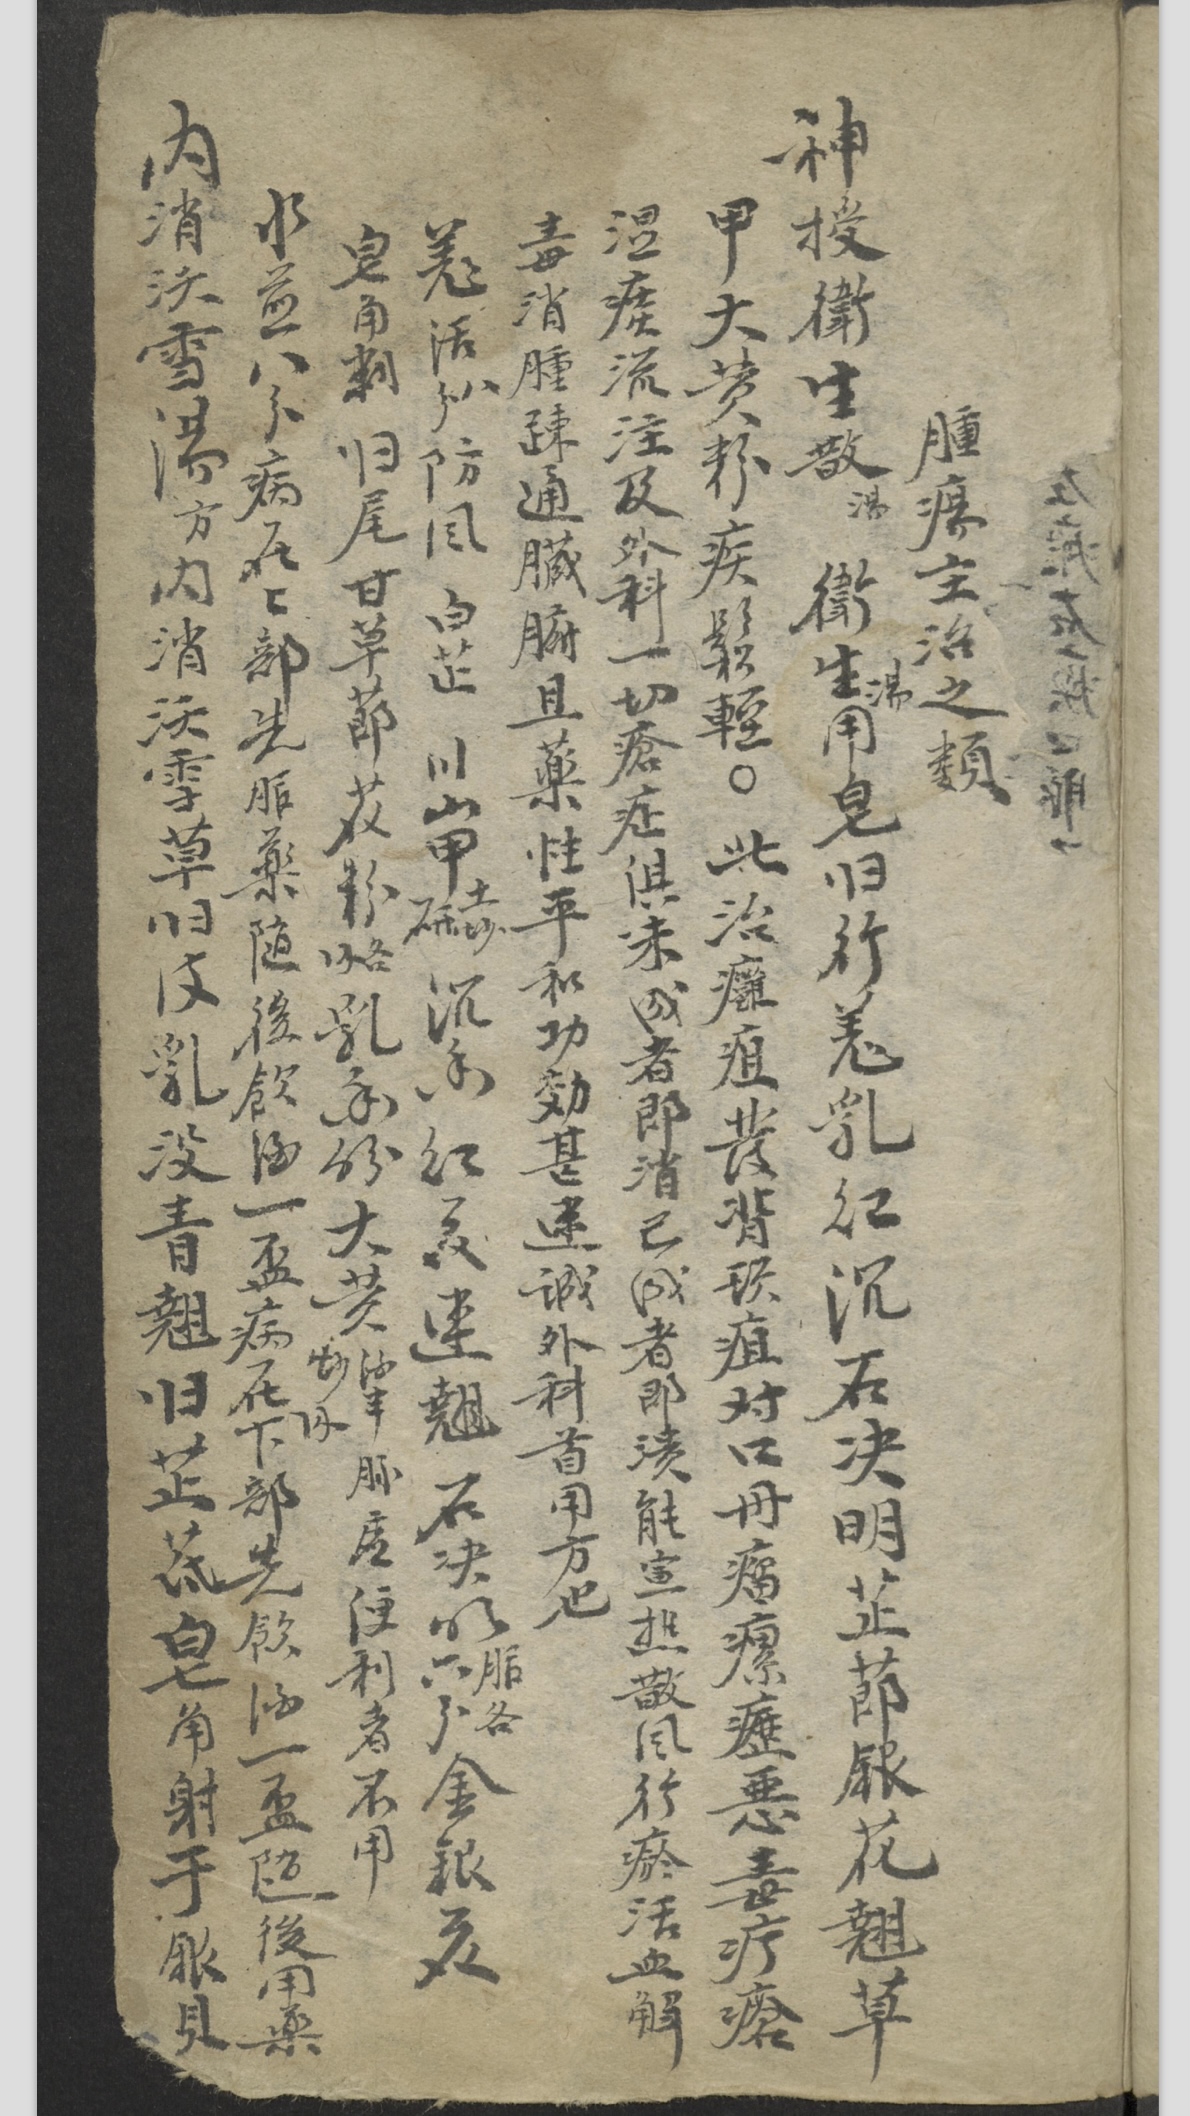 腫瘍主治之類
神授衛生散湯 衛生湯用皂归行羌乳红沉石决明芷節銀花翹草
甲大黄粉疾鬆輕○此治癰疽發背 疽对口丹瘤瘰癧惡毒疔瘡
湿痰流注及外科一切瘡症俱未成者即消已成者即潰能宣 散風行瘀活血解
毒消腫疎通臟腑且藥性平和功効甚速誠外科首用方也
羌活八分防風 白芷 川山甲土炒研 沉香 红花 連翹 石决明六分 服各 金銀花
皂角刺 归尾 甘草節 花粉 乳香 大黄 脉虚便利者不用
水 八分病在上部先服藥随後飲酒一盃病在下部先飲酒一盃随後用藥
内消沃雪湯方内消沃雪草归 乳没青翹归芷 皂角射于 貝